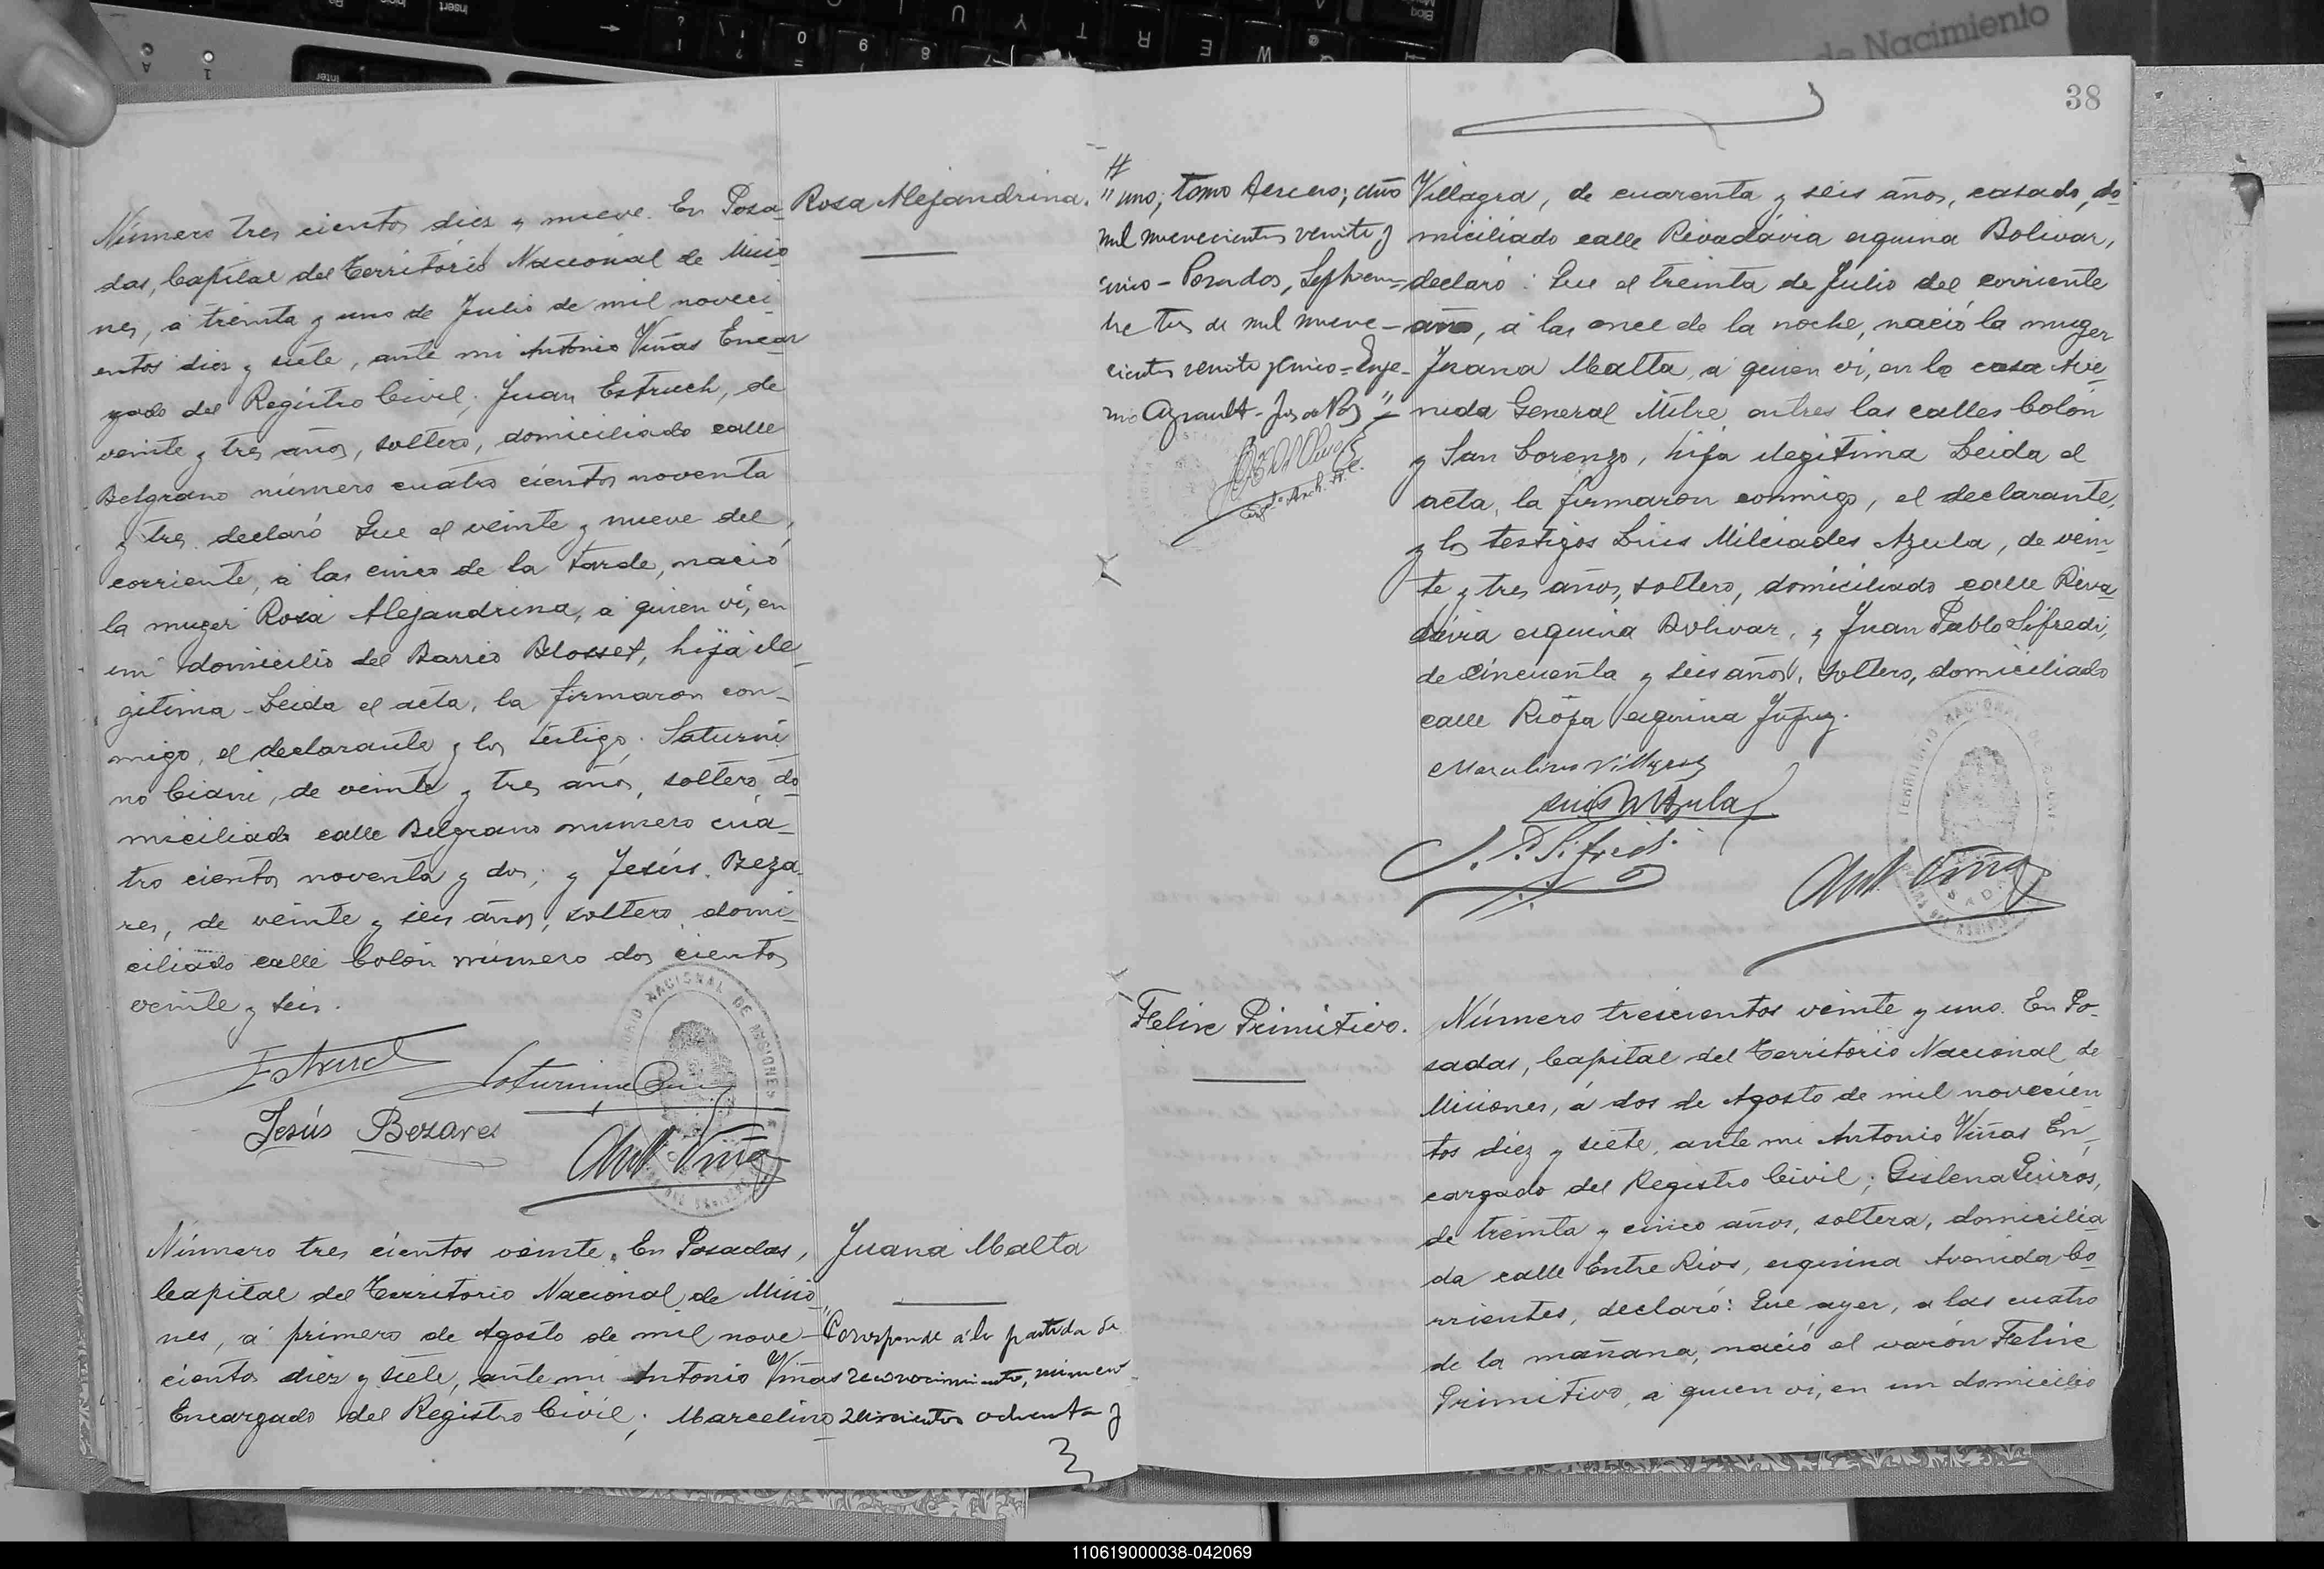 Número tres cientos diez y nueve. En Posa-
das, Capital del Territorio Nacional de Misio-
nes, á treinta y uno de Julio de mil noveci-
entos diez y siete, ante mi Antonio Viñas Encar-
gado del Registro Civil; Juan Estruch, de
veinte y tres años, soltero, domiciliado calle
Belgrano número cuatro cientos noventa
y tres, declaró Que el veinte y nueve del
corriente, á las cinco de la tarde, nació
la muger Rosa Alejandrina, á quien vi, en
un domicilio del Barrio Blosset, hija ile-
gitima. Leida el acta, la firmaron con-
migo, el declarante y los testigos: Saturni-
no Ciani, de veinte y tres años, soltero, do-
miciliado calle Belgrano numero cua-
tro cientos noventa y dos; y Jesús Beza-
res, de veinte y seis años, soltero, domi-
ciliado calle Colón número dos cientos
veinte y seis.
Estruch
Saturnino
Jesús Bezares
Ant Viñas
TERRITORIO NACIONAL DE MISIONES
Rosa Alejandrina.
Número tres cientos veinte. En Posadas,
Capital del Territorio Nacional de Misio-
nes, á primero de Agosto de mil nove-
cientos diez y siete, ante mi Antonio Viñas
Encargado del Registro Civil; Marcelino
Juana Malta
"Corresponde á la partida de
reconocimiento, número
doscientos ochenta y
38
" uno; tomo tercero; año
mil novecientos veinte y
cinco - Posadas, Septiem-
bre tres de mil nueve-
cientos veinte y cinco = Euge-
nio Agrault - Juez de Paz" =
Villagra, de cuarenta y seis años, casado, do-
miciliado calle Rivadavia esquina Bolivar,
declaró: Que el treinta de Julio del corriente
año, á las once de la noche, nació la muger
Juana Malta, á quien vi, en la casa Ave-
nida General Mitre entres las calles Colón
y San Lorenzo, hija ilegitima Leida el
acta, la firmaron conmigo, el declarante,
y los testigos Luis Milciades Azula, de vein-
te y tres años, soltero, domiciliado calle Riva-
davia esquina Bolivar, y Juan Pablo Sifredi,
de cincuenta y seis años, soltero, domiciliado
calle Rioja esquina Jujuy.
Marcelino Villagra
Luis M Azula
J. P. Sifredi
Ant Viñas
TERRITORIO NACIONAL DE
Felix Primitivo.
Número trescientos veinte y uno. En Po-
sadas, Capital del Territorio Nacional de
Misiones, á dos de Agosto de mil novecien-
tos diez y siete, ante mi Antonio Viñas En-
cargado del Registro Civil; Gislena Quiros,
de treinta y cinco años, soltera, domicilia-
da calle Entre Rios, esquina Avenida Co-
rrientes, declaró: Que ayer, a las cuatro
de la mañana, nació el varón Felix
Primitivo, á quien vi, en un domicilio
de Nacimiento
110619000038-042069